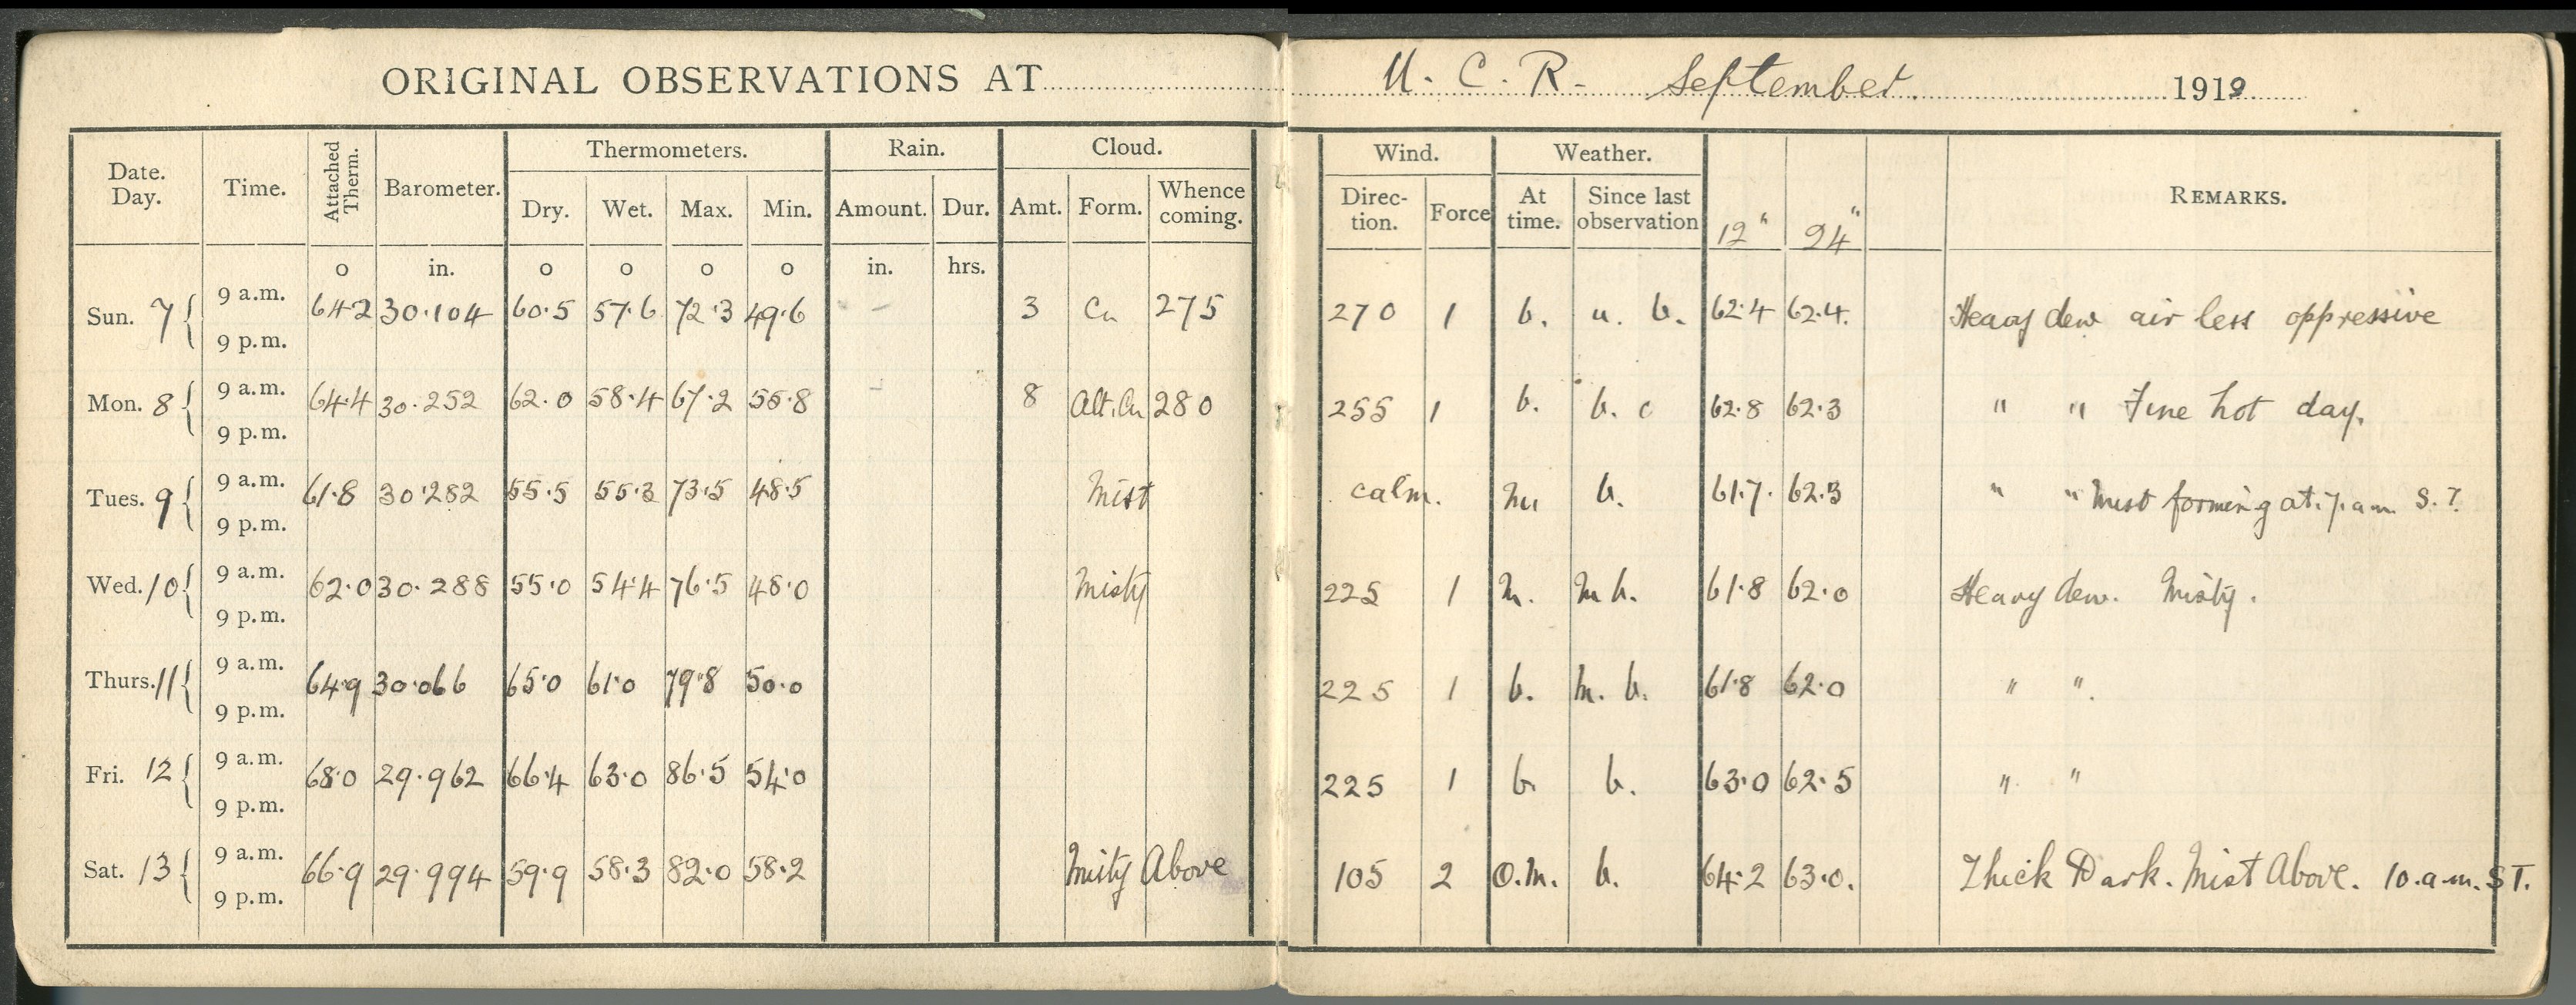 ORIGINAL OBSERVATIONS AT U. C. R. September 1919
Date. Day. Time. Attached Therm. Barometer. Thermometers. Dry. Wet. Max. Min. Rain. Amount. Dur. Cloud. Amt. Form. Whence coming. Wind. Direction. Force Weather. At time. Since last observation 12" 24" REMARKS.
o in. o o o o in. hrs.
Sun. 7 { 9 a.m. 64.2 30.104 60.5 57.6 72.3 49.6 - 3 Cu 275 270 1 b. u. b. 62.4 62.4. Heavy dew air less oppressive
9 p.m.
Mon. 8 { 9 a.m. 64.4 30.252 62.0 58.4 67.2 55.8 - 8 Alt.Cu 280 255 1 b. b. c 62.8 62.3 " " Fine hot day.
9 p.m.
Tues. 9 { 9 a.m. 61.8 30.282 55.5 55.3 73.5 48.5 Mist calm. m b. 61.7. 62.3 " " Mist forming at 7. a.m. S.T.
9 p.m.
Wed. 10 { 9 a.m. 62.0 30.288 55.0 54.4 76.5 48.0 Misty 225 1 m. m b. 61.8 62.0 Heavy dew. Misty.
9 p.m.
Thurs. 11 { 9 a.m. 64.9 30.066 65.0 61.0 79.8 50.0 225 1 b. m. b. 61.8 62.0 " ".
9 p.m.
Fri. 12 { 9 a.m. 68.0 29.962 66.4 63.0 86.5 54.0 225 1 b b. 63.0 62.5 " "
9 p.m.
Sat. 13 { 9 a.m. 66.9 29.994 59.9 58.3 82.0 58.2 Misty Above 105 2 O.m. b. 64.2 63.0. Thick Dark. Mist Above. 10.a.m. S T.
9 p.m.